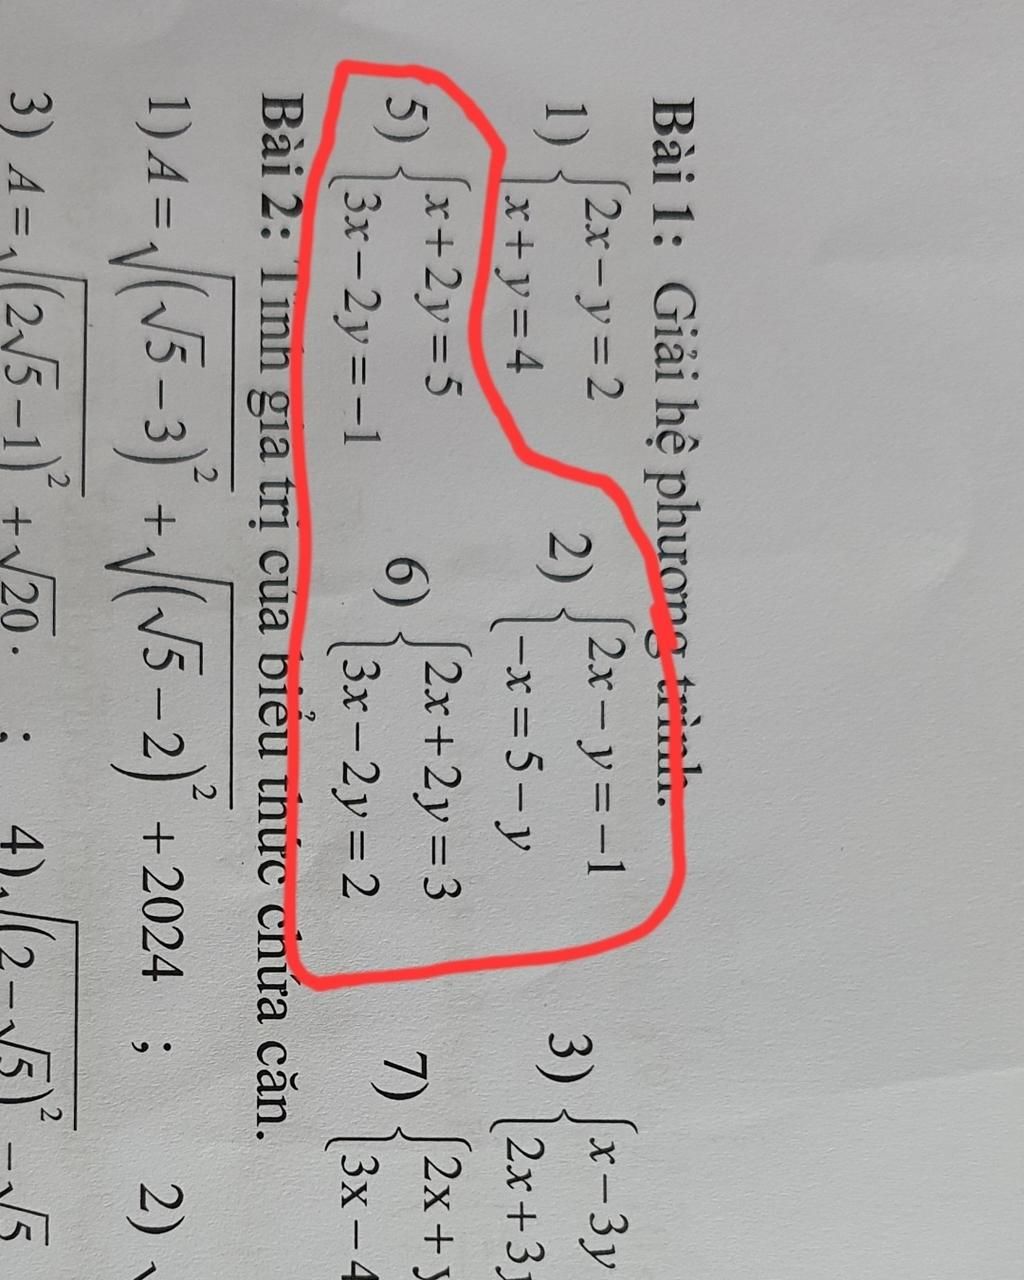 Bài 1: Giải hệ phương trình.
1) { 2x − y = 2   2) { 2x − y = −1   3) { x − 3y
x + y = 4   −x = 5 − y   2x + 3y
5) { x + 2y = 5   6) { 2x + 2y = 3   7) { 2x + y
3x − 2y = −1   3x − 2y = 2   3x − 4
Bài 2: Tính giá trị của biểu thức chứa căn.
1) A = √((√5 − 3)²) + √((√5 − 2)²) + 2024 ;   2) √
3) A = √((2√5 − 1)²) + √20 . ;   4) √((2 − √5)²) − √5